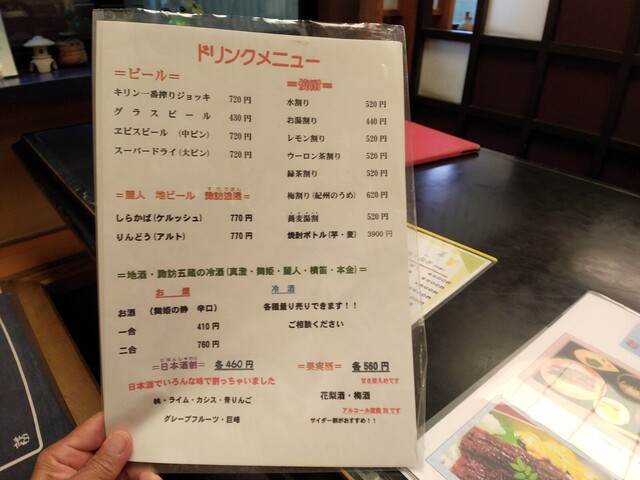 ドリンクメニュー
＝ビール＝
キリン一番搾りジョッキ 720円
グラスビール 430円
ヱビスビール (中ビン) 720円
スーパードライ(大ビン) 720円
＝麗人 地ビール 諏訪浪漫＝
しらかば(ケルッシュ) 770円
りんどう(アルト) 770円
＝焼酎＝
水割り 520円
お湯割り 440円
レモン割り 520円
ウーロン茶割り 520円
緑茶割り 520円
梅割り(紀州のうめ) 620円
蕎麦湯割 520円
焼酎ボトル(芋・麦) 3900円
＝地酒・諏訪五蔵の冷酒(真澄・舞姫・麗人・横笛・本金)＝
お燗
お酒 (舞姫の静 辛口)
一合 410円
二合 760円
冷酒
各種量り売りできます！！
ご相談ください
にほんしゅわり
＝日本酒割＝ 各460円
日本酒でいろんな味で割っちゃいました
桃・ライム・カシス・青りんご
グレープフルーツ・巨峰
＝果実酒＝ 各560円
甘さ控えめです
花梨酒・梅酒
サイダー割がおすすめ！！